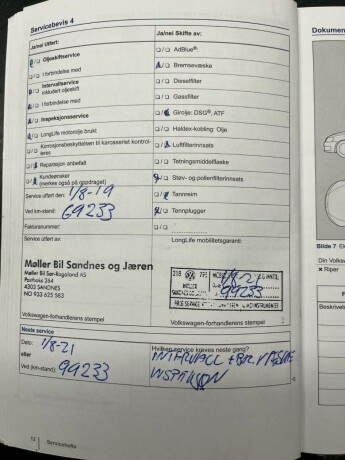 Servicebevis 4
Dokumen
Ja/nei Utført: Ja/nei Skifte av:
Oljeskiftservice AdBlue®:
I forbindelse med Bremsevæske
Intervallservice Dieselfilter
inkludert oljeskift
I forbindelse med Gassfilter
Inspeksjonsservice Girolje: DSG®, ATF
LongLife motorolje brukt Haldex-kobling: Olje
Korrosjonsbeskyttelsen til karosseriet kontrol- Luftfilterinnsats
leres
Reparasjon anbefalt Tetningsmiddelflaske
Kundeønsker Støv- og pollenfilterinnsats
(merkes også på oppdraget)
Service utført den: 1/8-19 Tannreim
Ved km-stand: 69233 Tennplugger
Fakturanummer:
Service utført av: LongLife mobilitetsgaranti
Møller Bil Sandnes og Jæren
Møller Bil Sør-Rogaland AS
Postboks 264
4303 SANDNES
NO 933 625 583
1/8-21
99233
Volkswagen-forhandlerens stempel Volkswagen-forhandlerens stempel
Neste service
Dato: 1/8-21 Hvilken service kreves neste gang?
eller INTERVALL +
Ved (km-stand): 99233 INSPEKSJON
12 Servicehefte
Bilde 7
Din Volks
× Riper
Beskrivels